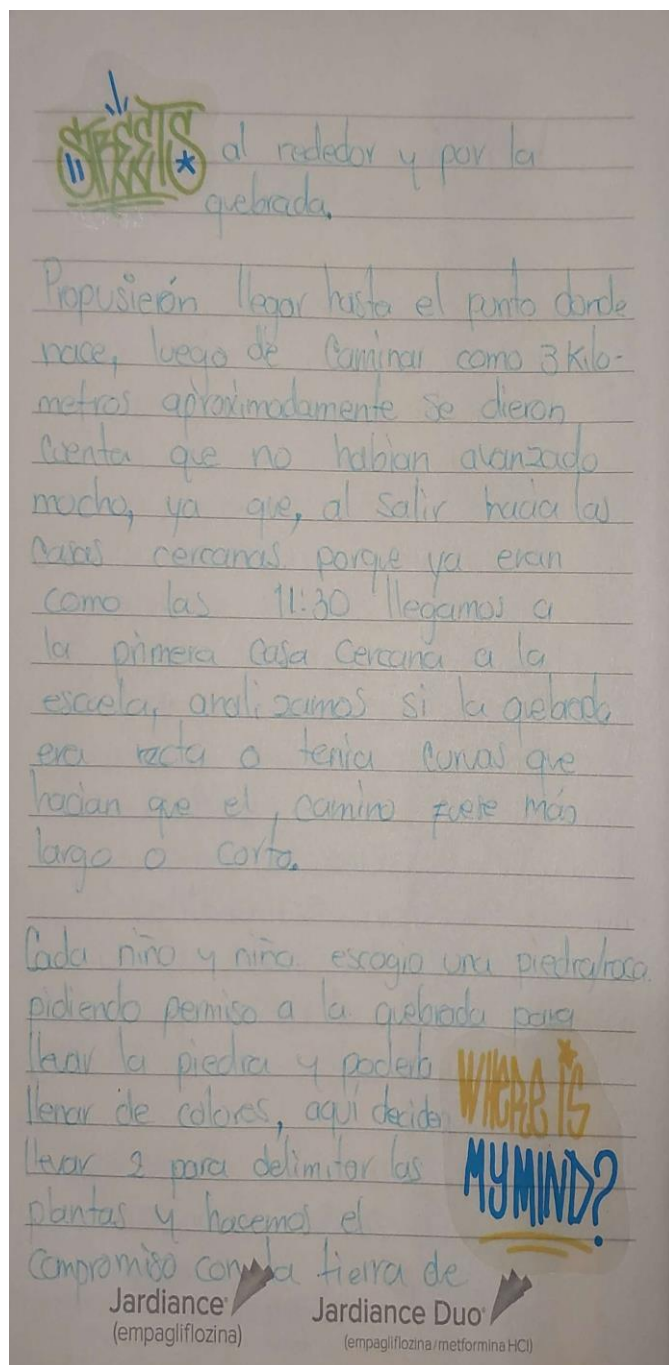 STREETS al rededor y por la
quebrada.
Propusierón llegar hasta el punto donde
nace, luego de caminar como 3 Kilo-
metros aproximadamente se dieron
cuenta que no habian avanzado
mucho, ya que, al salir hacia las
casas cercanas porque ya eran
como las 11:30 llegamos a
la primera casa cercana a la
escuela, analizamos si la quebrada
era recta o tenia curvas que
hacian que el, camino fuese más
largo o corto.
Cada niño y niña escogio una piedra/roca
pidiendo permiso a la quebrada para
llevar la piedra y poderla
llenar de colores, aquí deciden
WHERE IS
llevar 2 para delimitar las
MY MIND?
plantas y hacemos el
compromiso con la tierra de
Jardiance® Jardiance Duo®
(empagliflozina) (empagliflozina/metformina HCl)